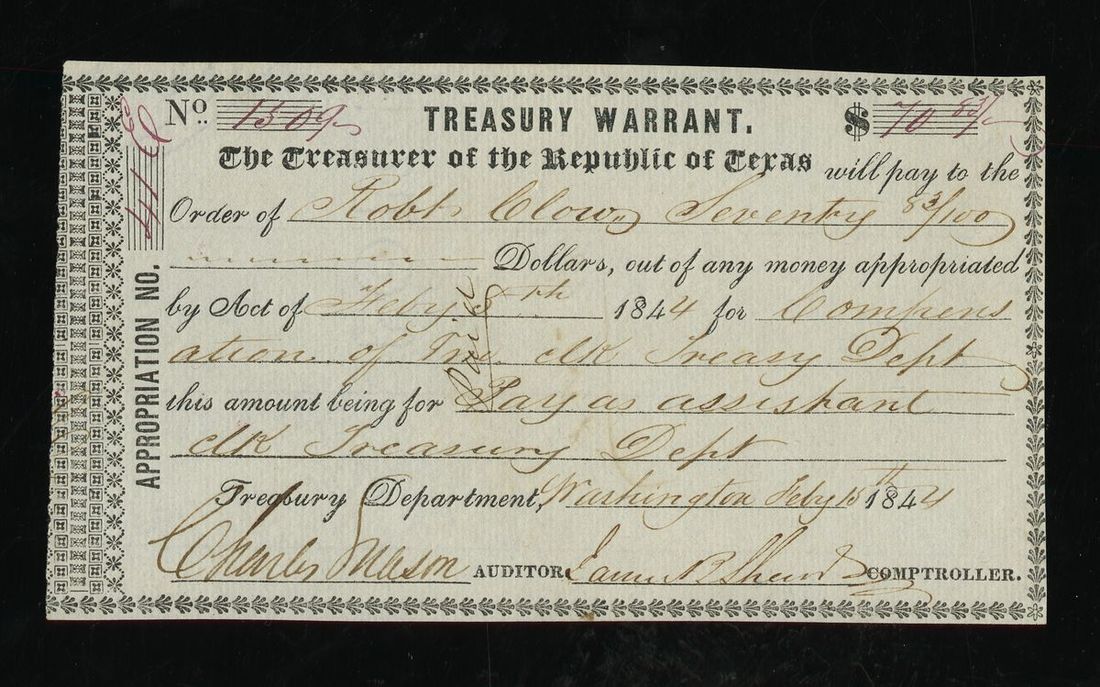 No. 1509
TREASURY WARRANT.
$ 70 83/
The Treasurer of the Republic of Texas will pay to the
Order of Robt Clow Seventy 83/100
Dollars, out of any money appropriated
by Act of Feby 8th 1844 for Compens
ation of Tre clk Treasy Dept
this amount being for Pay as assistant
clk Treasury Dept
Treasury Department, Washington Feby 15th 1844
Charles Mason AUDITOR James B Shaw COMPTROLLER.
APPROPRIATION NO.
Paid